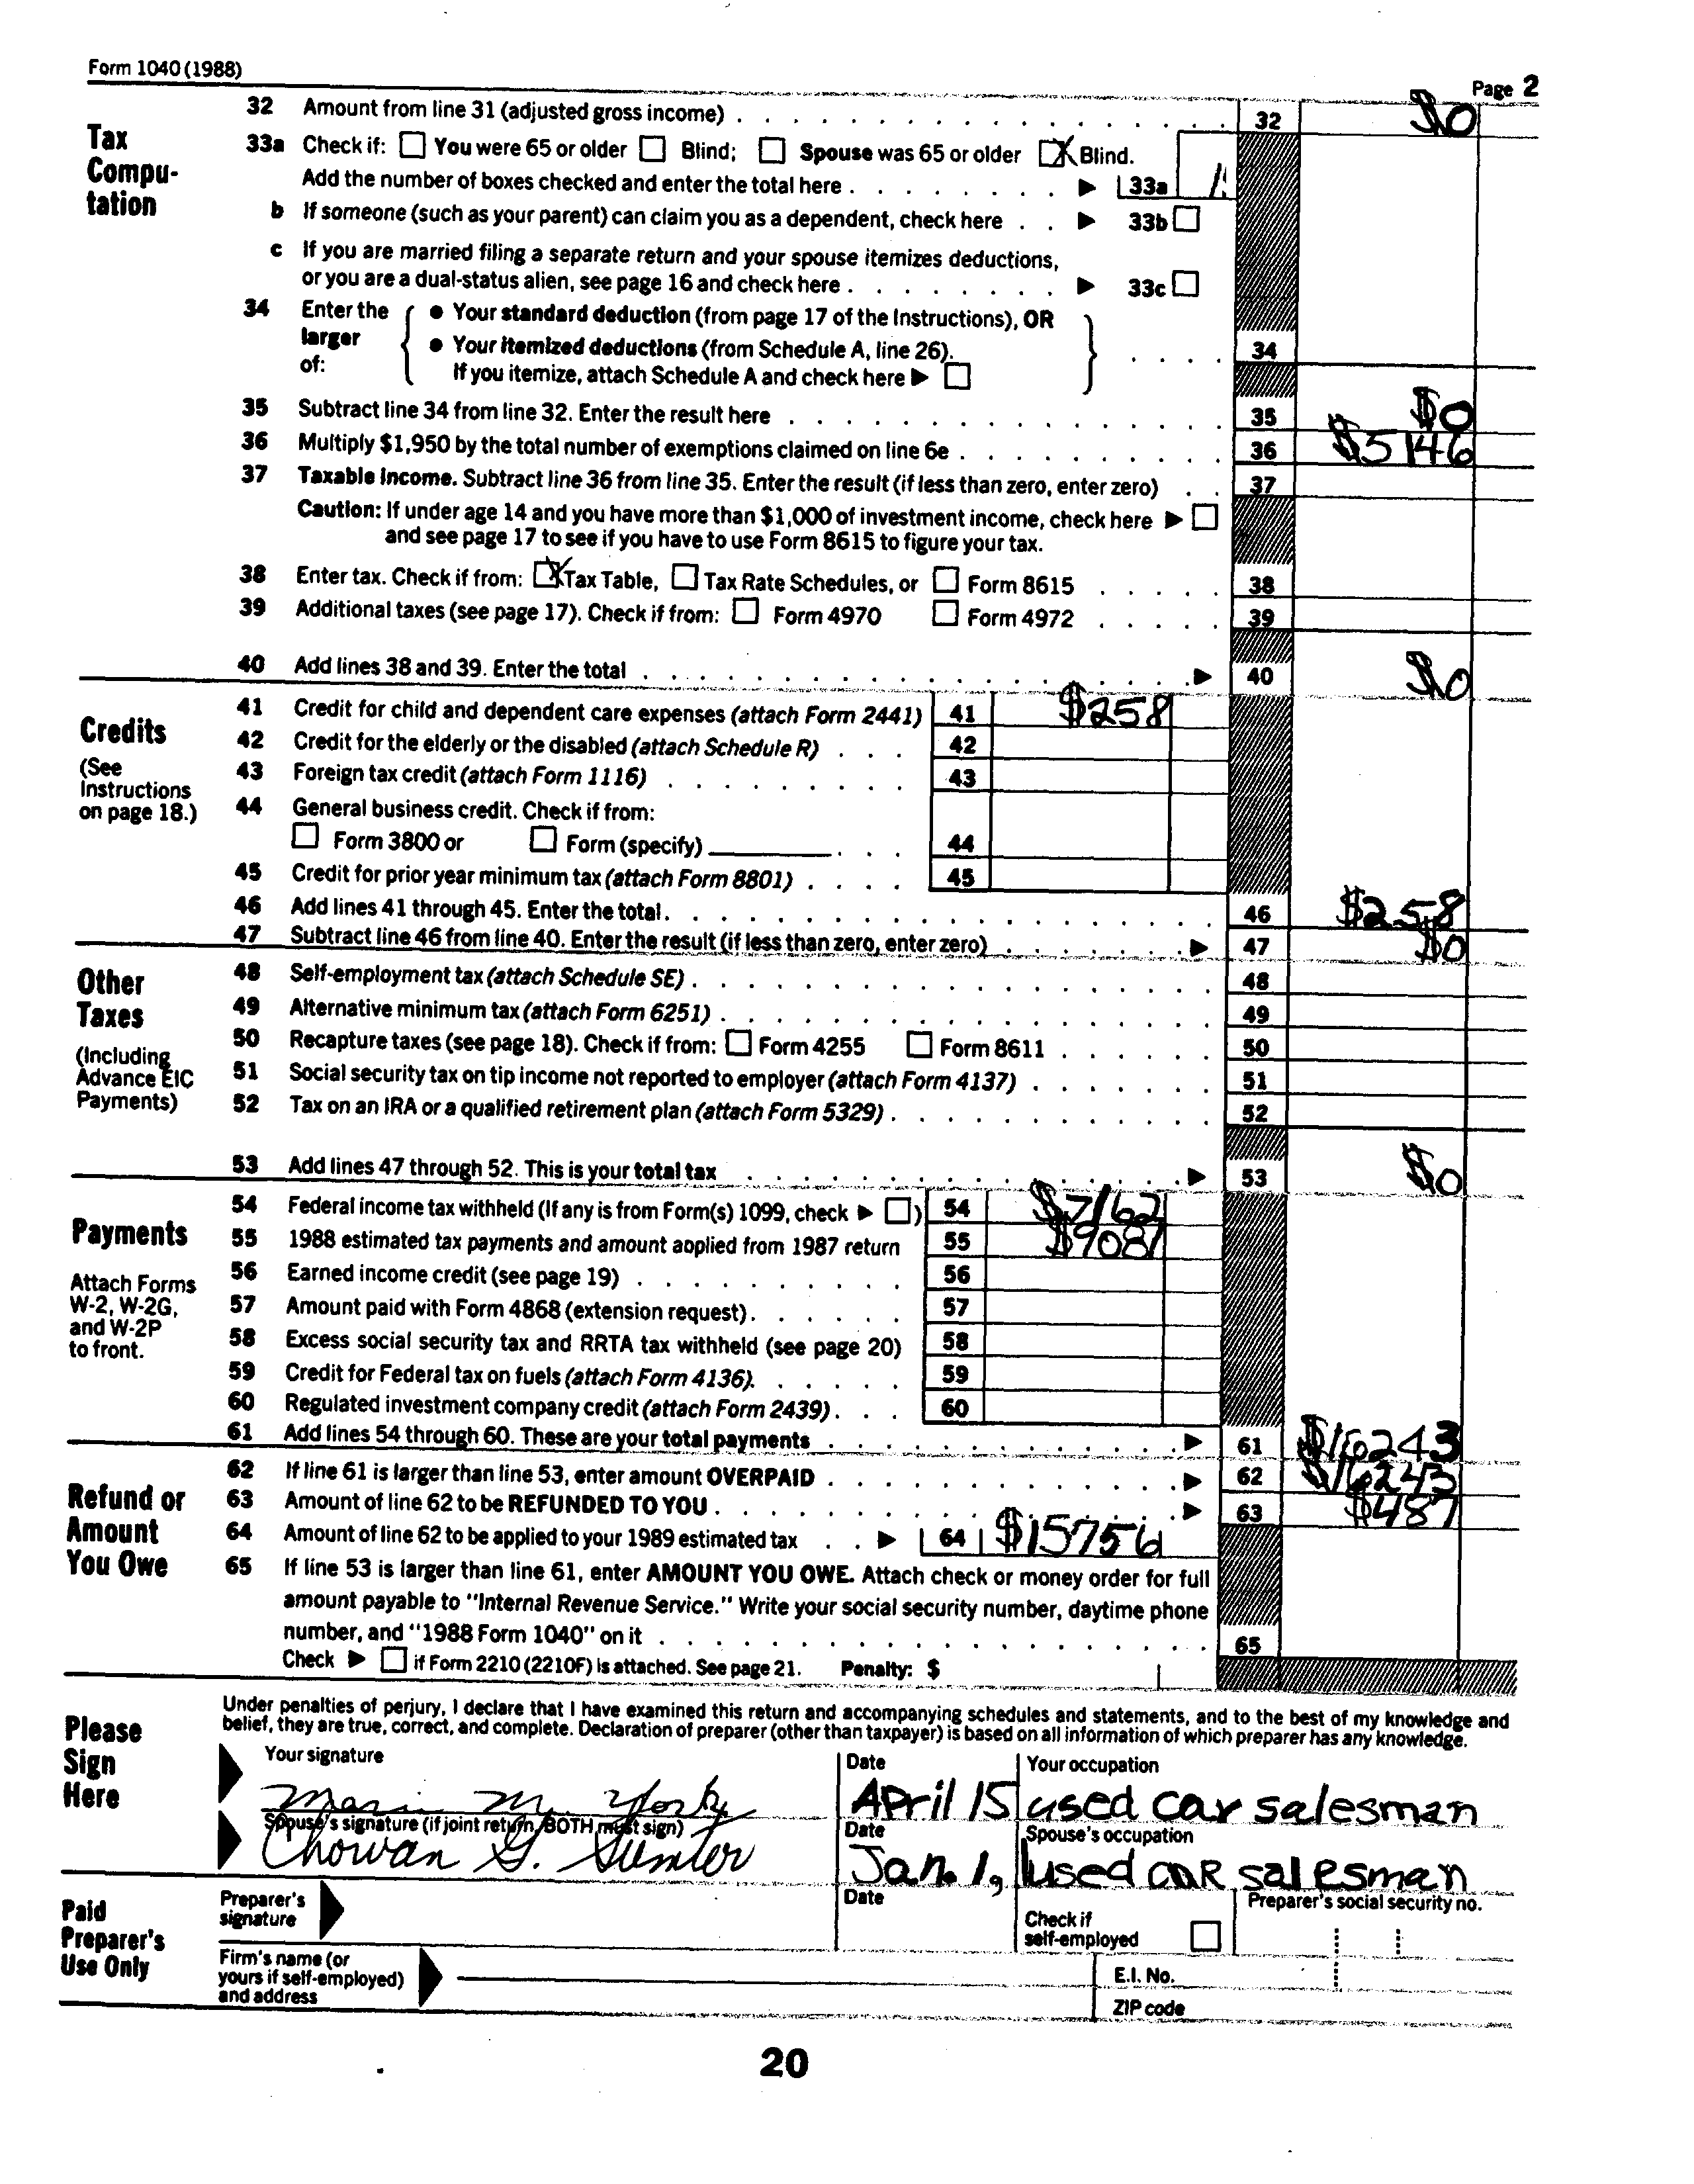 Form 1040 (1988)
Page 2
Tax Compu-tation
32 Amount from line 31 (adjusted gross income) . . . . 32 $0
33a Check if: ☐ You were 65 or older ☐ Blind; ☐ Spouse was 65 or older ☒ Blind.
Add the number of boxes checked and enter the total here . . . . ▶ 33a 1
b If someone (such as your parent) can claim you as a dependent, check here . . ▶ 33b ☐
c If you are married filing a separate return and your spouse itemizes deductions,
or you are a dual-status alien, see page 16 and check here . . . . ▶ 33c ☐
34 Enter the larger of:
● Your standard deduction (from page 17 of the Instructions), OR
● Your itemized deductions (from Schedule A, line 26).
If you itemize, attach Schedule A and check here ▶ ☐ . . . . 34
35 Subtract line 34 from line 32. Enter the result here . . . . 35 $0
36 Multiply $1,950 by the total number of exemptions claimed on line 6e . . . . 36 $5146
37 Taxable income. Subtract line 36 from line 35. Enter the result (if less than zero, enter zero) . . 37
Caution: If under age 14 and you have more than $1,000 of investment income, check here ▶ ☐
and see page 17 to see if you have to use Form 8615 to figure your tax.
38 Enter tax. Check if from: ☒ Tax Table, ☐ Tax Rate Schedules, or ☐ Form 8615 . . . . 38
39 Additional taxes (see page 17). Check if from: ☐ Form 4970 ☐ Form 4972 . . . . 39
40 Add lines 38 and 39. Enter the total . . . . ▶ 40 $0
Credits
(See Instructions on page 18.)
41 Credit for child and dependent care expenses (attach Form 2441) 41 $258
42 Credit for the elderly or the disabled (attach Schedule R) . . . 42
43 Foreign tax credit (attach Form 1116) . . . . 43
44 General business credit. Check if from:
☐ Form 3800 or ☐ Form (specify) . . . 44
45 Credit for prior year minimum tax (attach Form 8801) . . . . 45
46 Add lines 41 through 45. Enter the total . . . . 46 $258
47 Subtract line 46 from line 40. Enter the result (if less than zero, enter zero) . . . . ▶ 47 $0
Other Taxes
(Including Advance EIC Payments)
48 Self-employment tax (attach Schedule SE) . . . . 48
49 Alternative minimum tax (attach Form 6251) . . . . 49
50 Recapture taxes (see page 18). Check if from: ☐ Form 4255 ☐ Form 8611 . . . . 50
51 Social security tax on tip income not reported to employer (attach Form 4137) . . . . 51
52 Tax on an IRA or a qualified retirement plan (attach Form 5329) . . . . 52
53 Add lines 47 through 52. This is your total tax . . . . ▶ 53 $0
Payments
Attach Forms W-2, W-2G, and W-2P to front.
54 Federal income tax withheld (If any is from Form(s) 1099, check ▶ ☐) 54 $7162
55 1988 estimated tax payments and amount applied from 1987 return 55 $9081
56 Earned income credit (see page 19) . . . . 56
57 Amount paid with Form 4868 (extension request) . . . . 57
58 Excess social security tax and RRTA tax withheld (see page 20) 58
59 Credit for Federal tax on fuels (attach Form 4136) . . . . 59
60 Regulated investment company credit (attach Form 2439) . . . 60
61 Add lines 54 through 60. These are your total payments . . . . ▶ 61 $16243
Refund or Amount You Owe
62 If line 61 is larger than line 53, enter amount OVERPAID . . . . ▶ 62 $16243
63 Amount of line 62 to be REFUNDED TO YOU . . . . ▶ 63 $487
64 Amount of line 62 to be applied to your 1989 estimated tax . . ▶ 64 $15756
65 If line 53 is larger than line 61, enter AMOUNT YOU OWE. Attach check or money order for full
amount payable to "Internal Revenue Service." Write your social security number, daytime phone
number, and "1988 Form 1040" on it . . . . 65
Check ▶ ☐ if Form 2210 (2210F) is attached. See page 21. Penalty: $
Please Sign Here
Under penalties of perjury, I declare that I have examined this return and accompanying schedules and statements, and to the best of my knowledge and
belief, they are true, correct, and complete. Declaration of preparer (other than taxpayer) is based on all information of which preparer has any knowledge.
Your signature Date Your occupation
Maria M. York April 15 used car salesman
Spouse's signature (if joint return, BOTH must sign) Date Spouse's occupation
Chowan G. Sumter Jan. 1, used car salesman
Paid Preparer's Use Only
Preparer's signature Date Check if self-employed ☐ Preparer's social security no.
Firm's name (or yours if self-employed) and address
E.I. No.
ZIP code
20